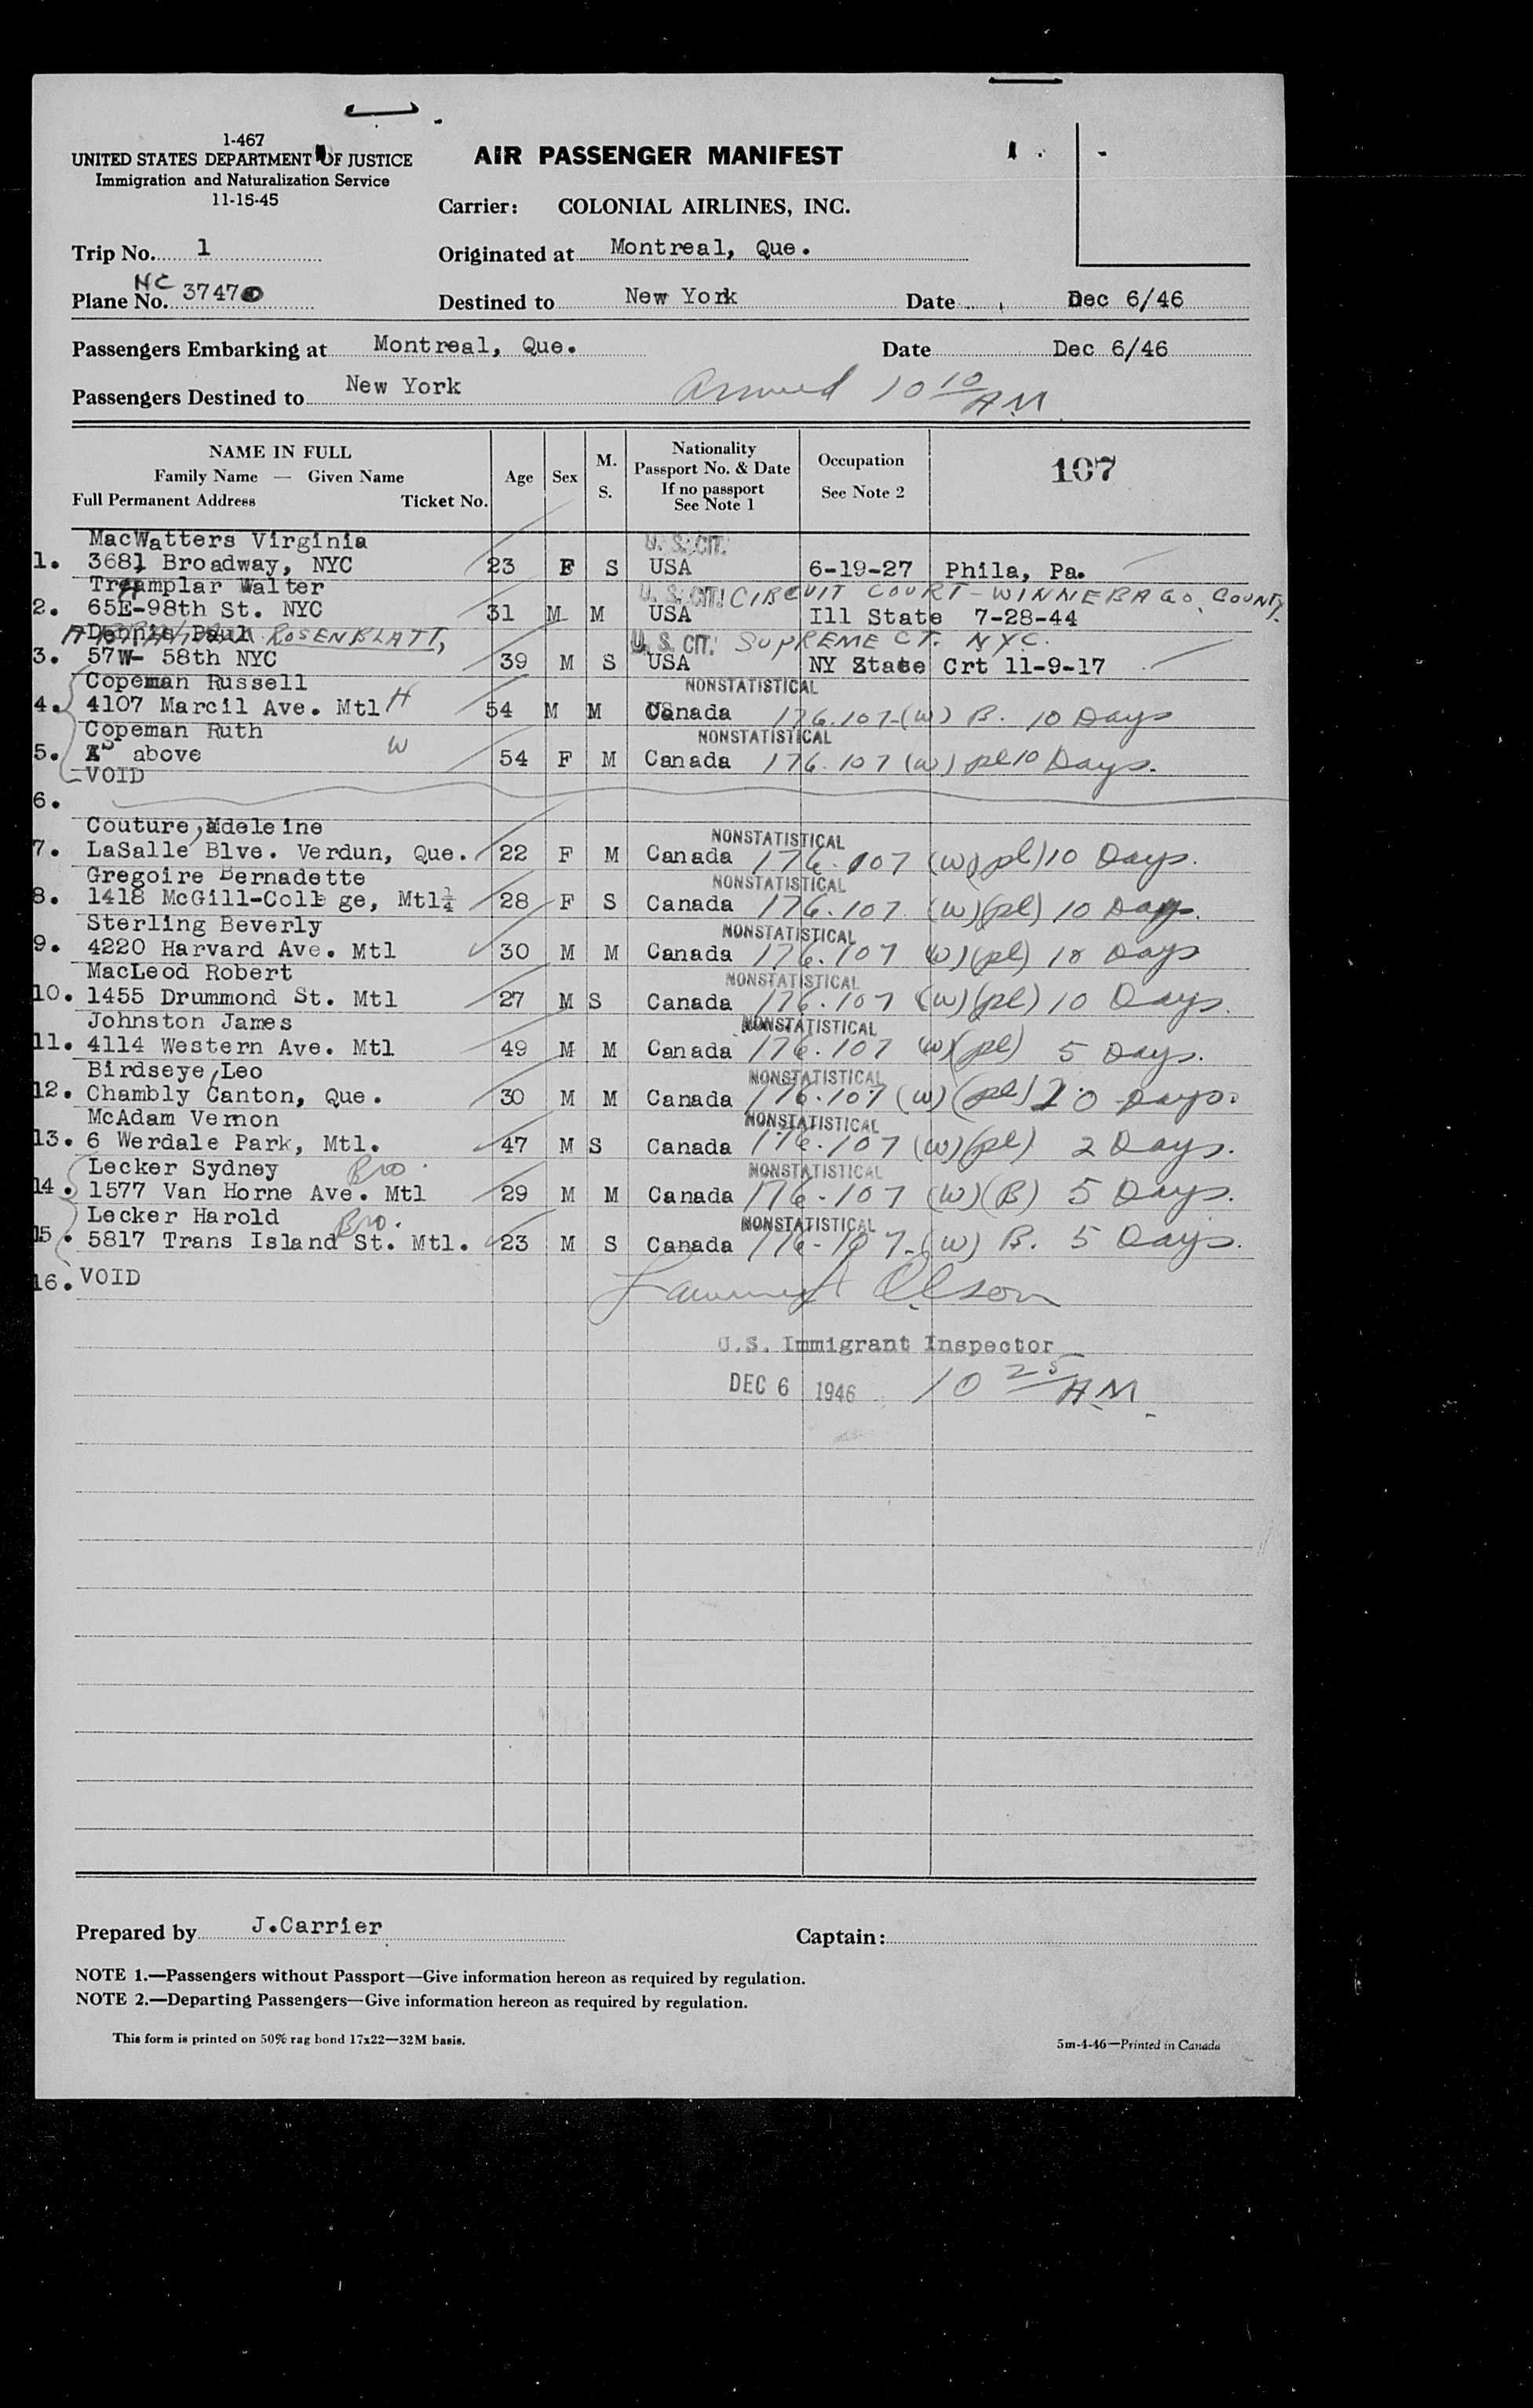 1-467
UNITED STATES DEPARTMENT OF JUSTICE
Immigration and Naturalization Service
11-15-45
AIR PASSENGER MANIFEST
Carrier: COLONIAL AIRLINES, INC.
Trip No. 1
Originated at Montreal, Que.
NC
Plane No. 37470
Destined to New York
Date Dec 6/46
Passengers Embarking at Montreal, Que.
Date Dec 6/46
Passengers Destined to New York
Arrived 10 10 AM
NAME IN FULL
Family Name — Given Name
Full Permanent Address Ticket No.
Age
Sex
M.
S.
Nationality
Passport No. & Date
If no passport
See Note 1
Occupation
See Note 2
107
MacWatters Virginia U. S. CIT.
1. 3681 Broadway, NYC 23 F S USA 6-19-27 Phila, Pa.
Walter U. S. CIT! CIRCUIT COURT - WINNEBAGO COUNTY.
2. 65E-98th St. NYC 31 M M USA Ill State 7-28-44
Paul ROSENBLATT, U. S. CIT. SUPREME CT. NYC.
3. 57W- 58th NYC 39 M S USA NY State Crt 11-9-17
Copeman Russell NONSTATISTICAL
4. 4107 Marcil Ave. Mtl H 54 M M Canada 176.107-(W) B. 10 Days
Copeman Ruth NONSTATISTICAL
5. above W 54 F M Canada 176.107 (W) pl 10 Days.
VOID
6.
Couture, Adeleine NONSTATISTICAL
7. LaSalle Blve. Verdun, Que. 22 F M Canada 176.107 (W)(pl) 10 Days.
Gregoire Bernadette NONSTATISTICAL
8. 1418 McGill-College, Mtl¼ 28 F S Canada 176.107 (W)(pl) 10 Days.
Sterling Beverly NONSTATISTICAL
9. 4220 Harvard Ave. Mtl 30 M M Canada 176.107 (W)(pl) 10 Days
MacLeod Robert NONSTATISTICAL
10. 1455 Drummond St. Mtl 27 M S Canada 176.107 (W)(pl) 10 Days.
Johnston James NONSTATISTICAL
11. 4114 Western Ave. Mtl 49 M M Canada 176.107 (W)(pl) 5 Days.
Birdseye, Leo NONSTATISTICAL
12. Chambly Canton, Que. 30 M M Canada 176.107 (W)(pl) 20 Days.
McAdam Vernon NONSTATISTICAL
13. 6 Werdale Park, Mtl. 47 M S Canada 176.107 (W)(pl) 2 Days.
Lecker Sydney Bro. NONSTATISTICAL
14. 1577 Van Horne Ave. Mtl 29 M M Canada 176-107 (W)(B) 5 Days.
Lecker Harold Bro. NONSTATISTICAL
15. 5817 Trans Island St. Mtl. 23 M S Canada 176-107-(W) B. 5 Days.
16. VOID
Olson
U.S. Immigrant Inspector
DEC 6 1946 10 25 AM
Prepared by J.Carrier
Captain:
NOTE 1.—Passengers without Passport—Give information hereon as required by regulation.
NOTE 2.—Departing Passengers—Give information hereon as required by regulation.
This form is printed on 50% rag bond 17x22—32M basis.
5m-4-46—Printed in Canada